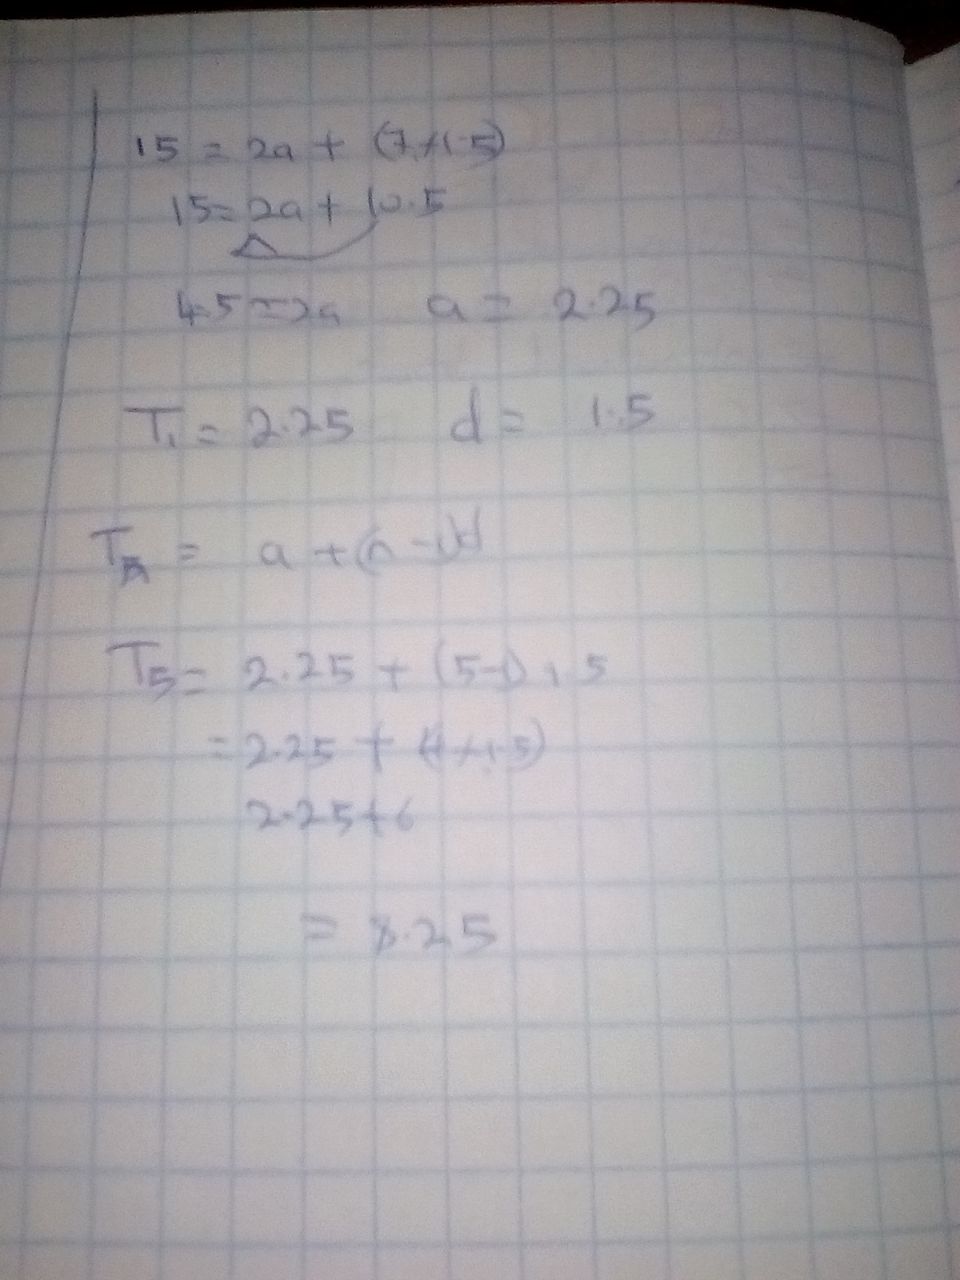 15 = 2a + (7×1.5)
15 = 2a + 10.5
4.5 = 2a a = 2.25
T₁ = 2.25 d = 1.5
Tₙ = a + (n-1)d
T₅ = 2.25 + (5-1)1.5
= 2.25 + (4×1.5)
2.25+6
= 8.25